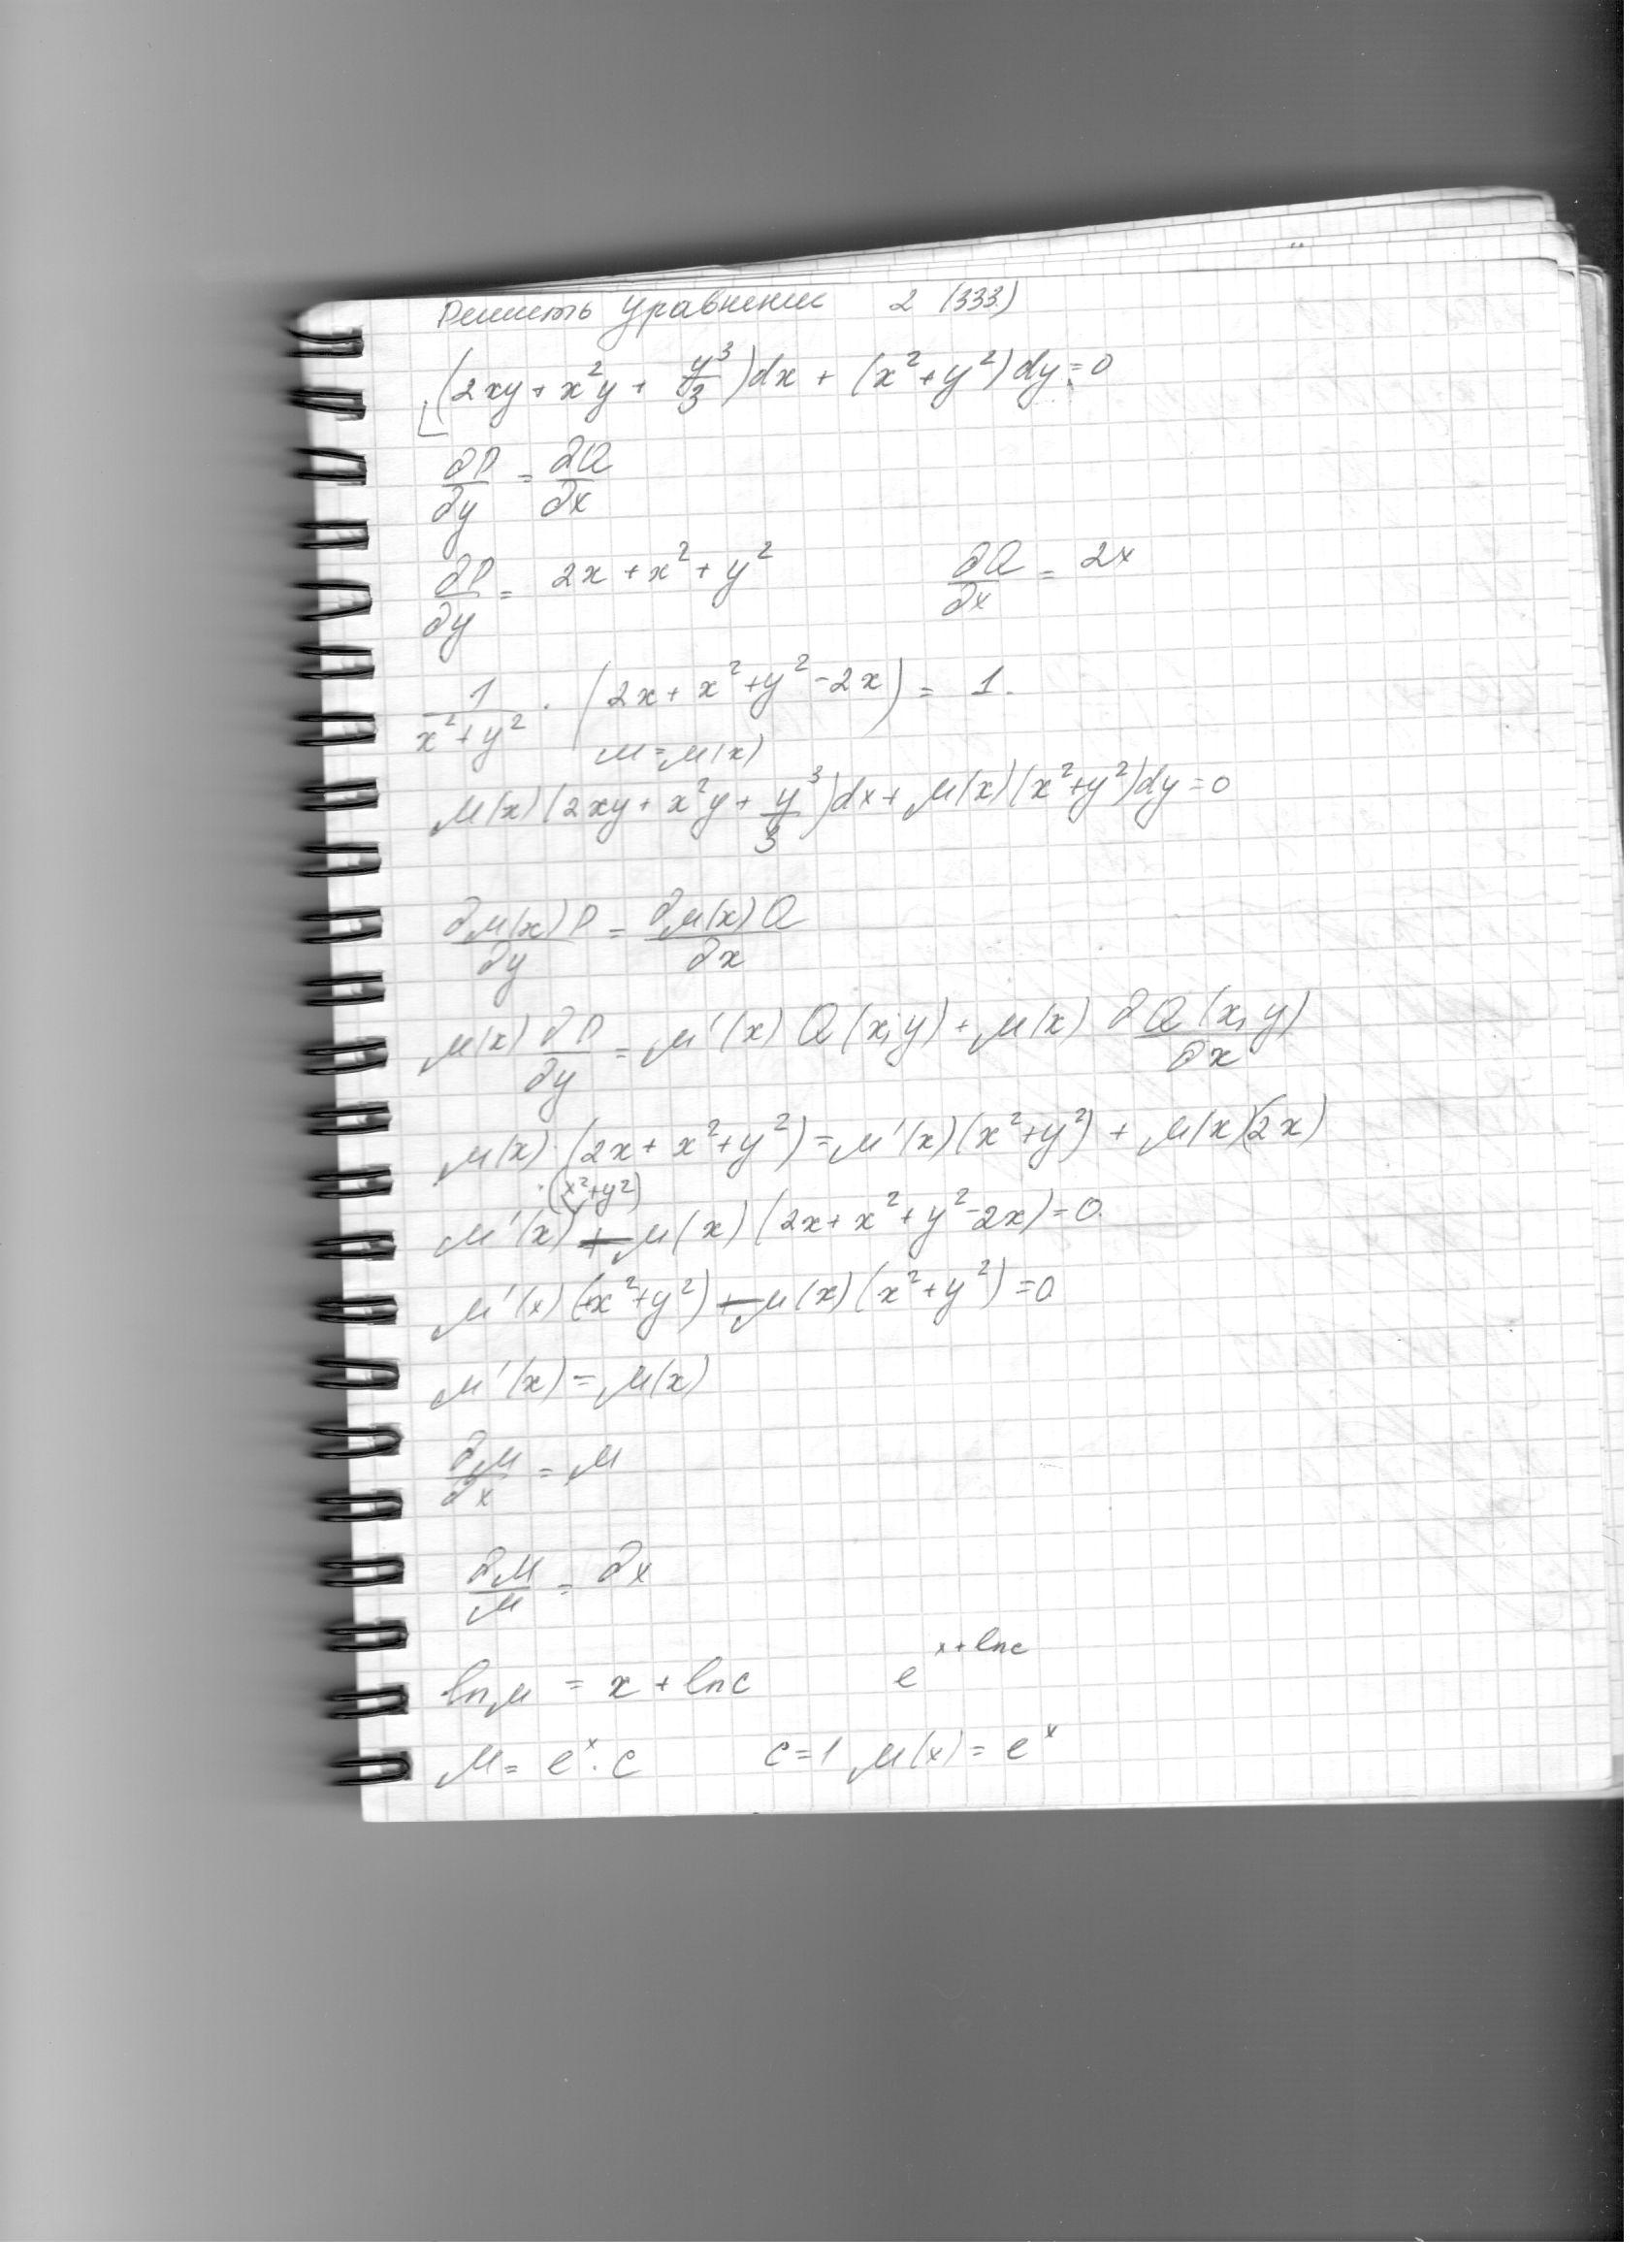 Решить уравнение 2 (333.)
(2xy + x²y + y³/3)dx + (x²+y²)dy = 0
∂P/∂y = ∂Q/∂x
∂P/∂y = 2x + x² + y² ∂Q/∂x = 2x
1/(x²+y²) · (2x + x² + y² - 2x) = 1.
μ = μ(x)
μ(x)(2xy + x²y + y³/3)dx + μ(x)(x²+y²)dy = 0
∂μ(x)P/∂y = ∂μ(x)Q/∂x
μ(x) ∂P/∂y = μ'(x) Q(x,y) + μ(x) ∂Q(x,y)/∂x
μ(x)·(2x + x² + y²) = μ'(x)(x²+y²) + μ(x)(2x)
·(x²+y²)
μ'(x) - μ(x)(2x + x² + y² - 2x) = 0.
μ'(x)(x²+y²) - μ(x)(x²+y²) = 0
μ'(x) = μ(x)
∂μ/∂x = μ
∂μ/μ = ∂x
ln μ = x + ln c e^(x + ln c)
μ = e^x · c c = 1 μ(x) = e^x